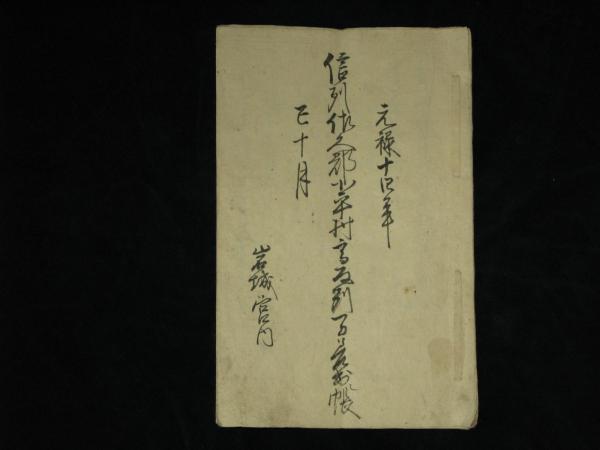 元禄十四年
信州佐久郡小平村高反別一百姓帳
巳十月
岩城宮内